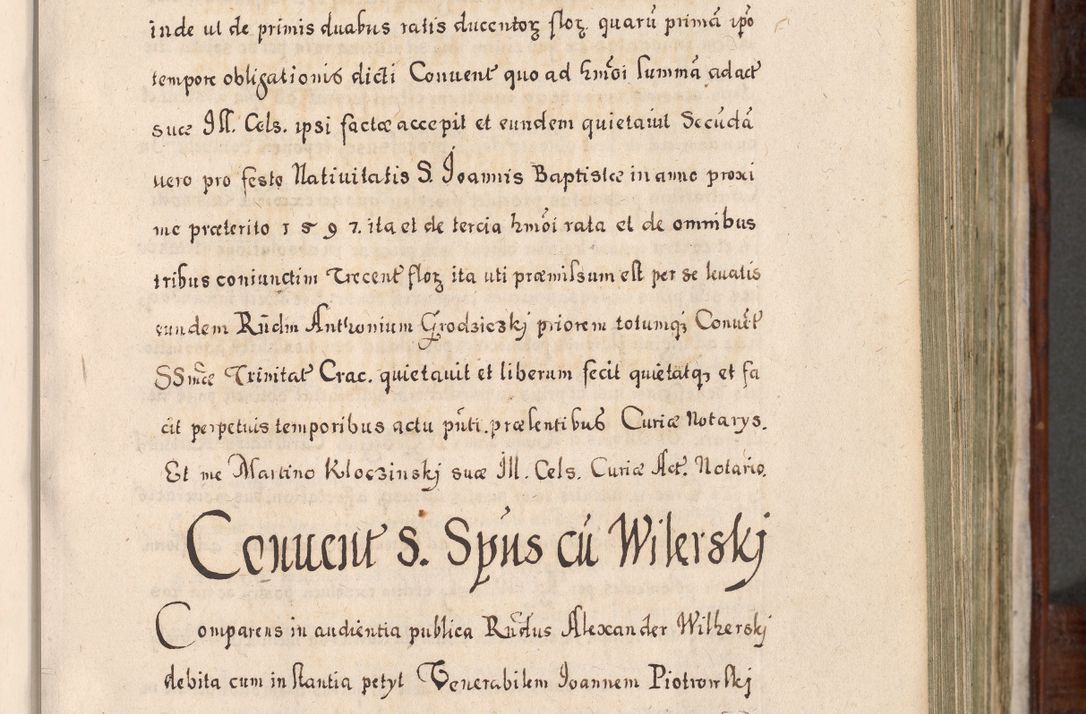 inde ut de primis duabus ratis ducentoꝝ floꝝ. quarū primā ip̄o
tempore obligationis dicti Conuent quo ad hmōi summā adact
suæ Ill. Cels. ipsi factæ accepit et eundem quietauit Secūdā
uero pro festo Natiuitatis S. Joannis Baptistæ in anno proxi
me præterito 1597. ita et de tercia hmōi rata et de omnibus
tribus coniunctim Trecent floꝝ ita uti præmissum est per se leuatis
eundem Rūdm Anthonium Grodziczkj priorem totumqꝫ Conuēt
SSmæ Trinitat Crac. quietauit et liberum fecit quietatqꝫ et fa
cit perpetuis temporibus actu pn̄ti. præsentibus Curiæ Notarys.
Et me Martino Kloczinskj suæ Ill. Cels. Curiæ Act. Notario.
Conuent S. Spūs cū Wilerskj
Comparens in audientia publica Rn̄dus Alexander Wilherskj
debita cum instantia petyt Venerabilem Joannem Piotrowskj